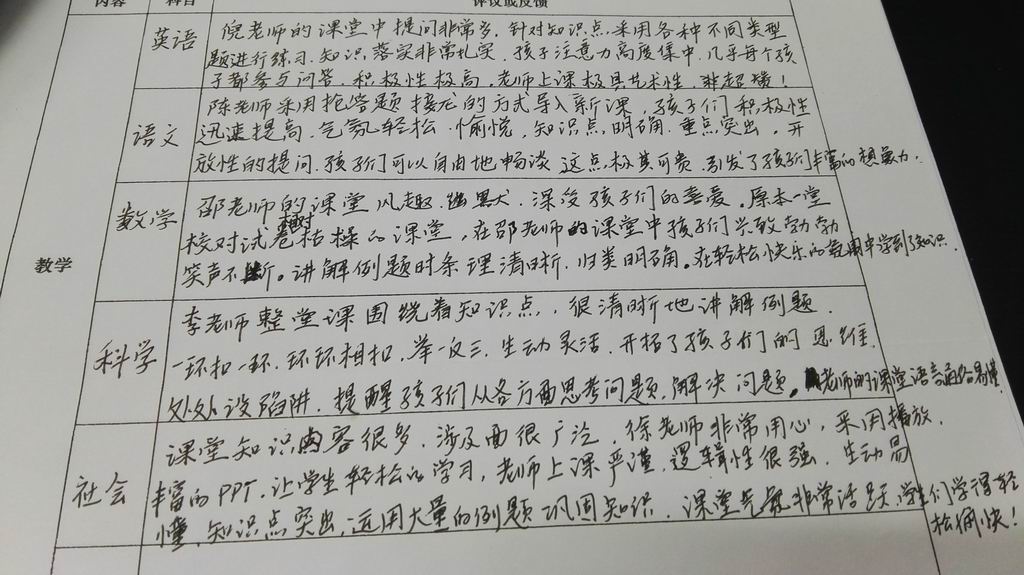 内容 科目 评议或反馈
教学
英语
倪老师的课堂中提问非常多，针对知识点采用各种不同类型
题进行练习，知识落实非常扎实，孩子注意力高度集中，几乎每个孩
子都参与问答，积极性极高。老师上课极具艺术性，非超赞！
语文
陈老师采用抢答题接龙的方式导入新课，孩子们积极性
迅速提高，气氛轻松、愉悦，知识点明确，重点突出，开
放性的提问，孩子们可以自由地畅谈，这点极其可贵，引发了孩子们丰富的想象力。
数学
邵老师的课堂风趣、幽默，深受孩子们的喜爱。原本一堂
校对试卷枯燥的课堂，在邵老师的课堂中孩子们兴致勃勃
笑声不断。讲解例题时条理清晰，归类明确。在轻松快乐的氛围中学到了知识。
科学
李老师整堂课围绕着知识点，很清晰地讲解例题，
一环扣一环，环环相扣，举一反三，生动灵活，开拓了孩子们的思维，
处处设陷阱，提醒孩子们从各方面思考问题，解决问题。老师的课堂语言通俗易懂
社会
课堂知识内容很多，涉及面很广泛，徐老师非常用心，采用播放，
丰富的PPT，让学生轻松的学习，老师上课严谨，逻辑性很强，生动易
懂，知识点突出，运用大量的例题巩固知识，课堂气氛非常活跃，学生们学得轻
松愉快！